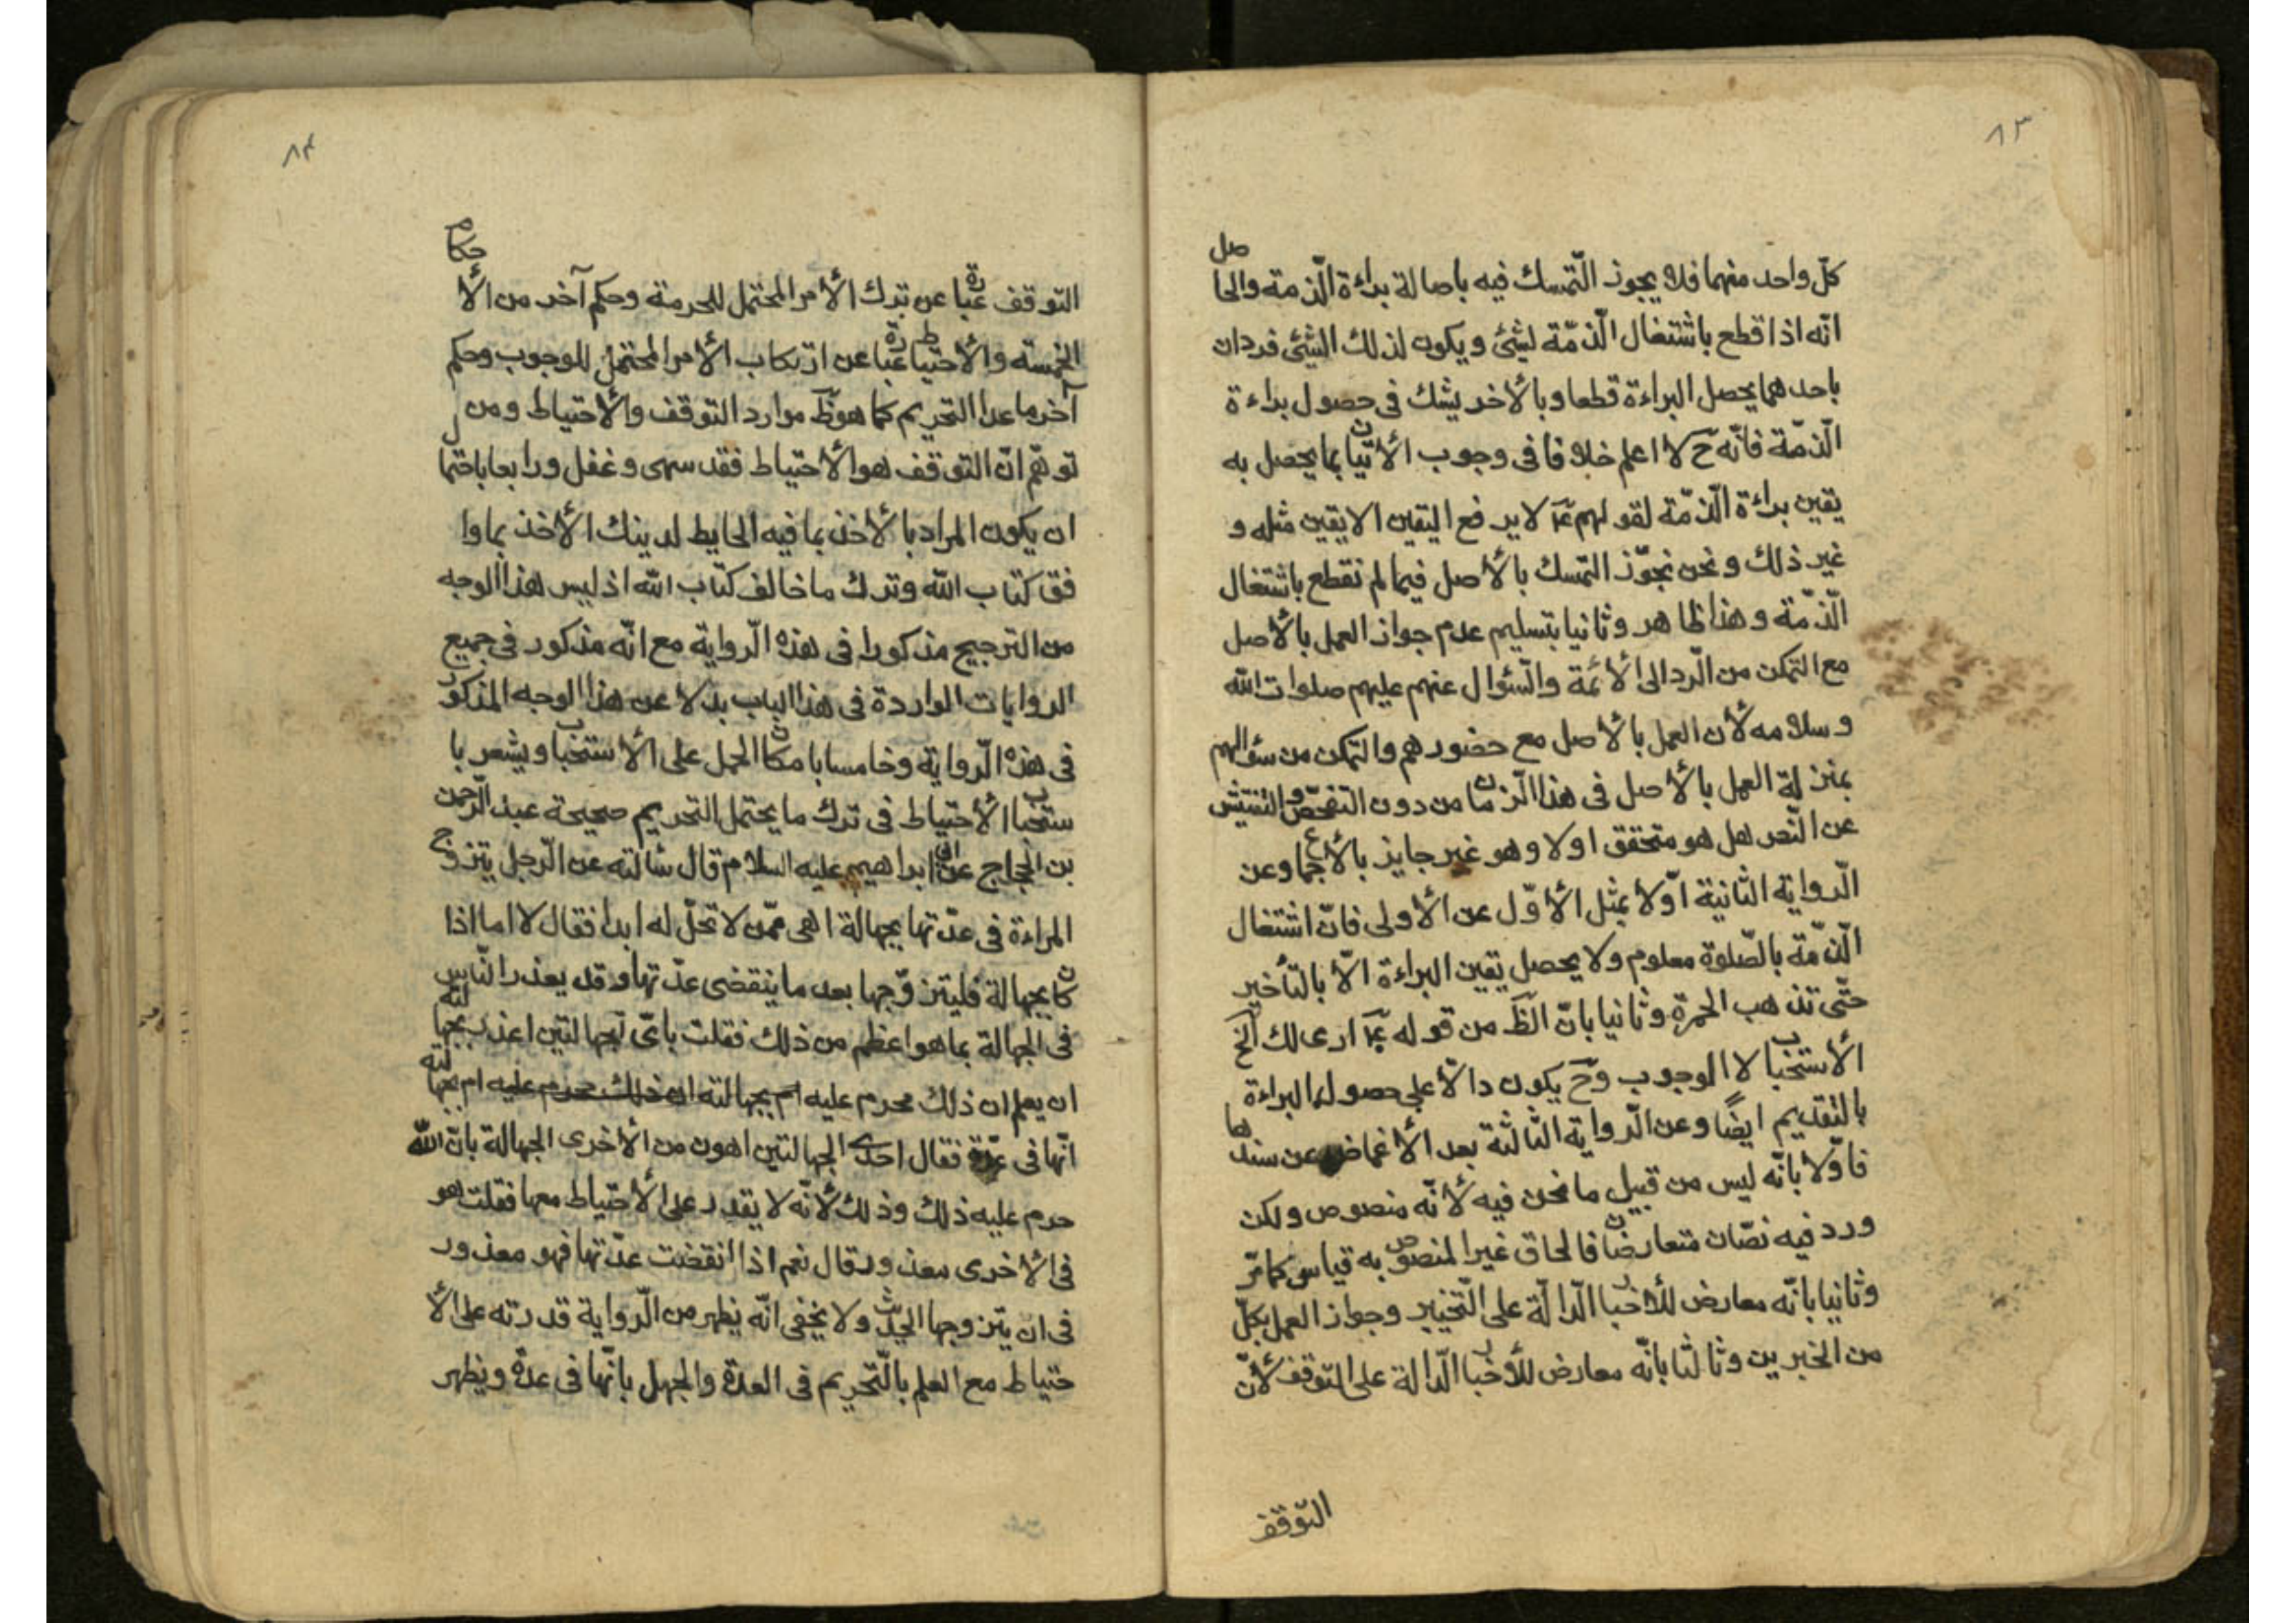 ٨٣
كلّ واحد منهما فلا يجوز التّمسك فيه باصالة براءة الّذمة والحاصل
انّه اذا قطع باشتغال الّذمّة لشئ ويكون لذلك الشئ فردان
باحدهما يحصل البراءة قطعا وبالأخر يشك فى حصول براءة
الّذمّة فانّه حَ لا اعلم خلافا فى وجوب الأتيان بما يحصل به
يقين براءة الّذمّة لقولهم عَ لا يرفع اليقين الا يقين مثله و
غير ذلك ونحن نجوّز التمسك بالأصل فيما لم نقطع باشتغال
الّذمّة وهذا ظاهر وثانيا بتسليم عدم جواز العمل بالأصل
مع التمكن من الّرد الى الأئمّة والسّئوال عنهم عليهم صلوات الله
وسلامه لأن العمل بالأصل مع حضورهم والتمكن من سئوالهم
بمنزلة العمل بالأصل فى هذا الّزمان من دون التفحّص والتفتيش
عن النّص هل هو متحقق اولا وهو غير جايز بالأجماع وعن
الّرواية الثانية اوّلا بمثل الأوّل عن الأولى فانّ اشتغال
الّذمّة بالصّلوة معلوم ولا يحصل يقين البراءة الّا بالتأخير
حتّى تذهب الحمرة وثانيا بانّ الظَ من قوله عَ ارى لك الخ
الأستحباب لا الوجوب وحَ يكون دالّا على حصول البراءة
بالتقديم ايضًا وعن الّرواية الثالثة بعد الأغماض عن سندها
فاوّلا بانّه ليس من قبيل ما نحن فيه لأنّه منصوص ولكن
ورد فيه نصّان متعارضان فالحاق غير المنصوص به قياس كما مّر
وثانيا بانّه معارض للأخبار الّدالّة على التّخيير وجواز العمل بكلّ
من الخبرين وثالثا بانّه معارض للأخبار الّدالة على التّوقف لأنّ
التّوقف
٨٤
التوقف عبارة عن ترك الأمر المحتمل للحرمة وحكم آخر من الأحكام
الخمسة والأحتياط عبارة عن ارتكاب الأمر المحتمل للوجوب وحكم
آخر ما عدا التحريم كما هو ظَ موارد التوقف والأحتياط ومن
توهّم انّ التوقف هو الأحتياط فقد سهى وغفل ورابعا باحتمال
ان يكون المراد بالأخذ بما فيه الحايط لدينك الأخذ بما وا
فق كتاب الله وترك ما خالف كتاب الله اذ ليس هذا الوجه
من الترجيح مذكورا فى هذه الّرواية مع انّه مذكور فى جميع
الروايات الواردة فى هذا الباب بدلا عن هذا الوجه المذكور
فى هذه الّرواية وخامسا بامكان الحمل على الأستحباب ويشعر با
ستحباب الأحتياط فى ترك ما يحتمل التحريم صحيحة عبد الّرحمن
بن الحجاج عن ابى ابراهيم عليه السلام قال سئالته عن الّرجل يتزوج
المراءة فى عدّتها بجهالة اهى ممّن لا تحلّ له ابدا فقال لا اما اذا
كان بجهالة فليتزوّجها بعد ما ينقضى عدّتها وقد يعذر النّاس
فى الجهالة بما هو اعظم من ذلك فقلت باىّ الجهالتين اعذر بجهالته
ان يعلم ان ذلك محرم عليه ام بجهالته ان ذلك حرم عليه ام بجهالته
انّها فى عدّة فقال احدى الجهالتين اهون من الأخرى الجهالة بانّ الله
حرم عليه ذلك وذلك لأنّه لا يقدر على الأحتياط معها فقلت هو
فى الأخرى معذور قال نعم اذا انقضت عدّتها فهو معذور
فى ان يتزوجها الحديث ولا يخفى انّه يظهر من الّرواية قدرته على الأ
حتياط مع العلم بالتّحريم فى العدّة والجهل بانّها فى عدّة ويظهر